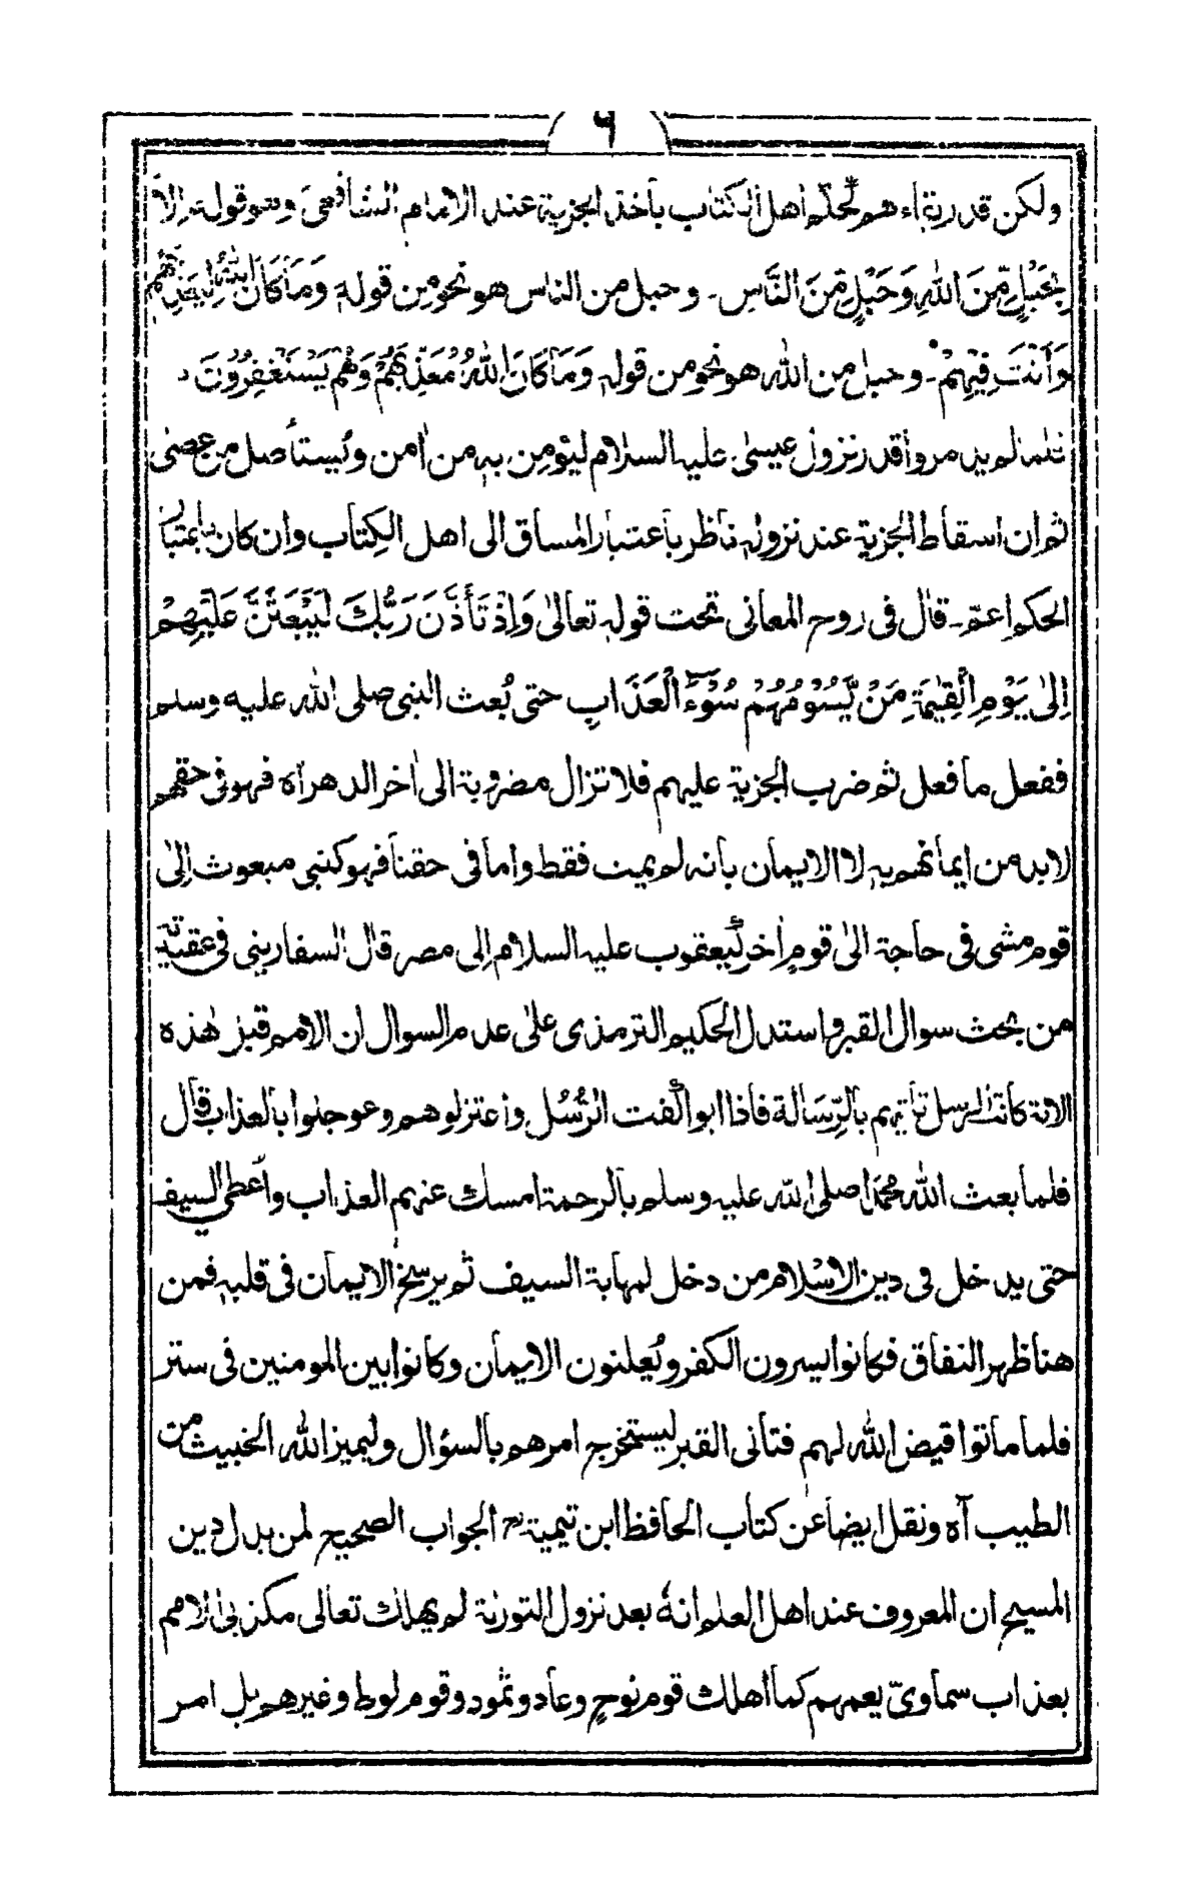 ٦
ولكن قدر بقاءهم لحكم اهل الكتاب بأخذ الجزية عند الامام الشافعي وهو قوله الا
بِحَبْلٍ مِّنَ اللهِ وَحَبْلٍ مِّنَ النَّاسِ۔ وحبل من الناس هو نحو من قوله وَمَا كَانَ اللهُ لِيُعَذِّبَهُمْ
وَأَنْتَ فِيْهِمْ۔ وحبل من الله هو نحو من قوله وَمَا كَانَ اللهُ مُعَذِّبَهُمْ وَهُمْ يَسْتَغْفِرُوْنَ۔
فلما لم يدمروا قدر نزول عيسىٰ عليه السلام ليؤمن به من اٰمن ويُستأصل من عصىٰ
ثم ان اسقاط الجزية عند نزوله ناظر باعتبار المساق الى اهل الكِتاب وان كان باعتبار
الحكم اعمّ۔ قال فى روح المعانى تحت قوله تعالىٰ وَاِذْ تَأَذَّنَ رَبُّكَ لَيَبْعَثَنَّ عَلَيْهِمْ
اِلىٰ يَوْمِ الْقِيٰمَةِ مَنْ يَّسُوْمُهُمْ سُوْٓءَ الْعَذَابِ حتى بُعث النبى صلى الله عليه وسلم
ففعل ما فعل ثم ضرب الجزية عليهم فلا تزال مضروبة الى اٰخر الدهر اٰه فهو فى حقهم
لابد من ايمانهم به لا الايمان بانه لم يمت فقط واما فى حقنا فهو كنبى مبعوث اِلىٰ
قوم مشى فى حاجة الىٰ قومٍ اٰخر كيعقوب عليه السلام اِلى مصر قال السفارينى فى عقيدته
من بحث سوال القبر واستدل الحكيم الترمذى علىٰ عدم السوال ان الامم قبل هٰذه
الامة كانت الرسل تأتيهم بالرِّسَالة فاذا ابوا كفت الرُّسُل واعتزلوهم وعوجلوا بالعذاب قال
فلما بعث الله محمدًا صلى الله عليه وسلم بالرحمة امسك عنهم العذاب واُعطى السيف
حتى يدخل فى دين الاِسْلام من دخل لمهابة السيف ثم يرسخ الايمان فى قلبه فمن
هنا ظهر النفاق فكانوا يسرون الكفر ويُعلنون الايمان وكانوا بين المومنين فى ستر
فلما ماتوا قيض الله لهم فتانى القبر ليستخرج امرهم بالسؤال وليميز الله الخبيث من
الطيب اٰه ونقل ايضا عن كتاب الحافظ ابن تيمية رح الجواب الصحيح لمن بدل دين
المسيح ان المعروف عند اهل العلم انهٗ بعد نزول التورٰىة لم يهلك تعالى مكذبى الامم
بعذاب سماوىّ يعمهم كما اهلك قوم نوحٍ وعاد وثمود وقوم لوط وغيرهم بل امر